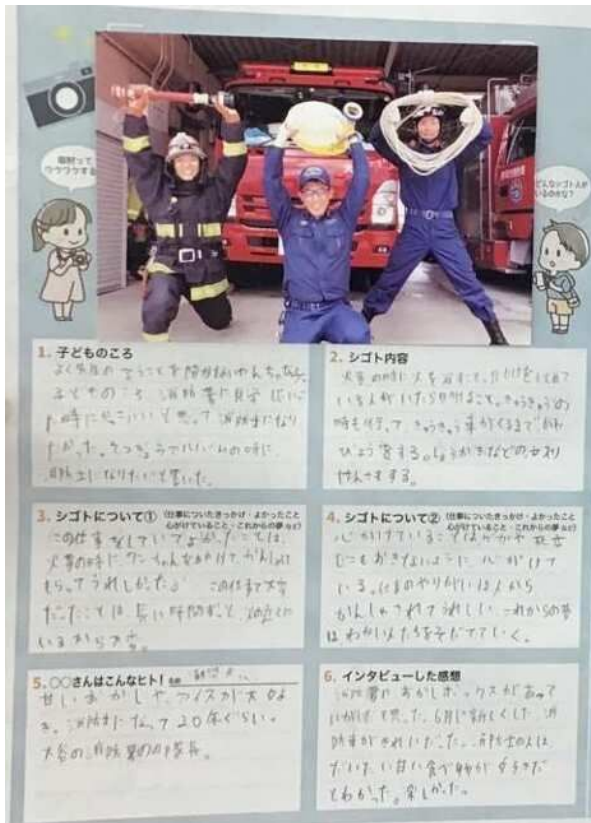 取材って
ワクワクする
どんなシゴト人が
いるのかな?
1. 子どものころ
子どものころ 消防署に見学
時にかっこいいと思って 消防士になり
たかった。そつぎょうアルバムの時に、
消防士になりたいと書いた。
2. シゴト内容
火事の時に火を消すこと。
いる人がいたら助けること。きゅうきゅうの
時も行って、きゅうきゅう車がくるまで
びょうをする。しょうかきなどの
けんさをする。
3. シゴトについて① (仕事についたきっかけ・よかったこと
心がけていること・これからの夢 など)
この仕事をしていてよかったことは、
火事の時に、ワンちゃんをたすけて、かんしゃ
もらってうれしかった。 この仕事で大変
だったことは、長い時間ずっと
いるから大変。
4. シゴトについて② (仕事についたきっかけ・よかったこと
心がけていること・これからの夢 など)
心がけていることはけがや
じこをおきないように 心がけて
いる。仕事のやりがいは人から
かんしゃされてうれしい。これからの夢
はわかい人たちをそだてていく。
5. 〇〇さんはこんなヒト! 名前
甘いおかしや、アイスが大好
き。消防士になって20年ぐらい。
隊長。
6. インタビューした感想
消防署に おかしボックスがあって
いがいだと思った。6月に新しくした 消
防車がきれいだった。消防士の人は
だいたい甘い食べ物が好きだ
とわかった。楽しかった。